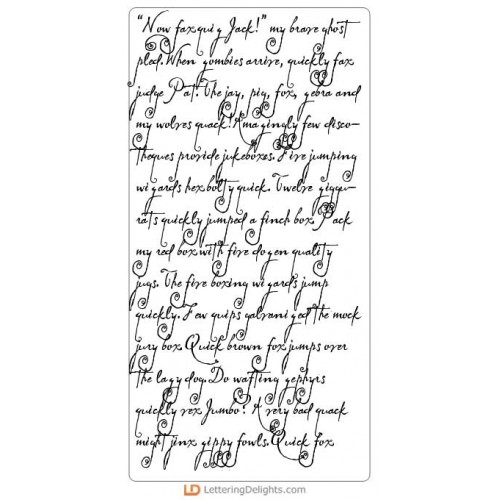 "Now fax quiz Jack!" my brave ghost
pled. When zombies arrive, quickly fax
judge Pat. The jay, pig, fox, zebra and
my wolves quack! Amazingly few disco-
theques provide jukeboxes. Five jumping
wizards hex bolty quick. Twelve ziggu-
rats quickly jumped a finch box. Pack
my red box with five dozen quality
jugs. The five boxing wizards jump
quickly. Few quips galvanized the mock
jury box. Quick brown fox jumps over
the lazy dog. Do wafting zephyrs
quickly vex Jumbo? A very bad quack
might jinx zippy fowls. Quick fox
LD LetteringDelights.com